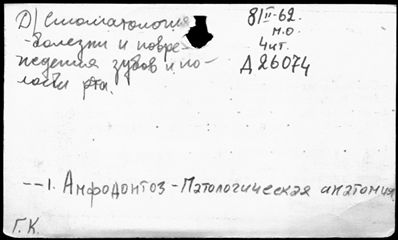 Д/Стоматология
- болезни и повре-
ждения зубов и по-
лости рта.
8/II-62.
м.о.
4чит.
Д26074
--1. Амфодонтоз - Патологическая анатомия
Г.К.